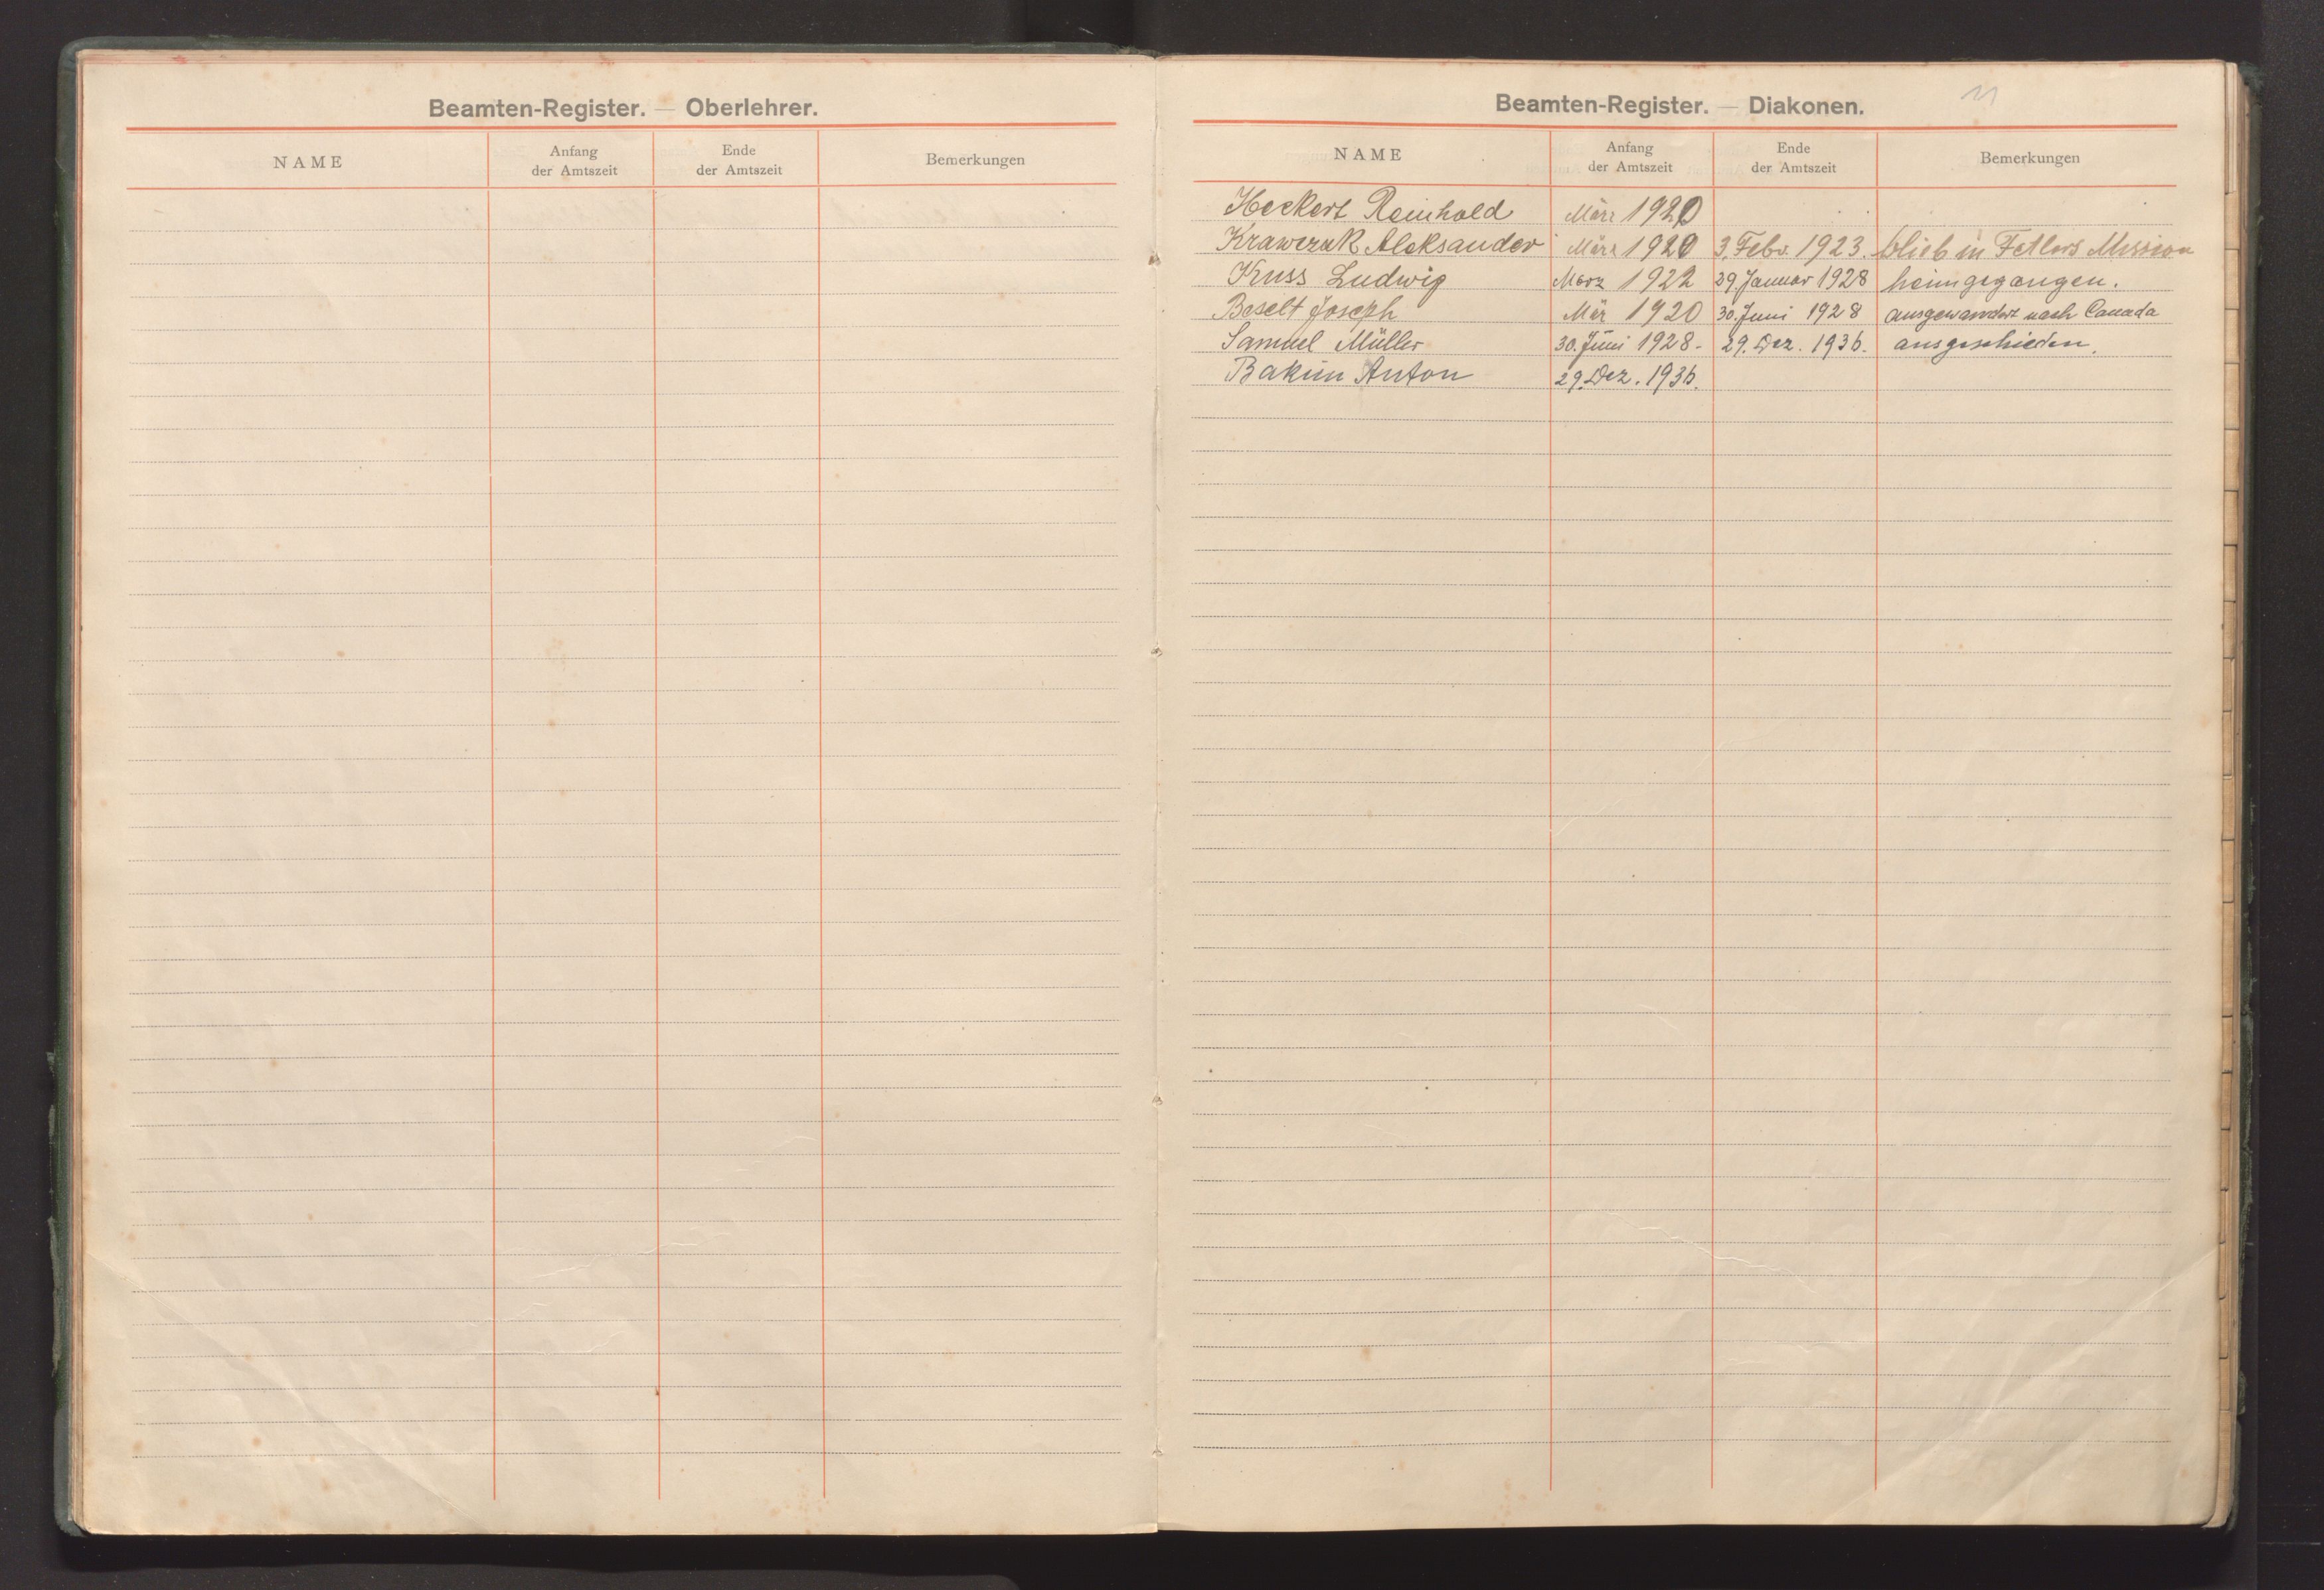 Beamten-Register. — Oberlehrer.
NAME Anfang der Amtszeit Ende der Amtszeit Bemerkungen
Beamten-Register. — Diakonen. 11
NAME Anfang der Amtszeit Ende der Amtszeit Bemerkungen
Heckert Reinhold März 1920
Krawczuk Aleksander März 1920 3. Febr. 1923. blieb in Fetlers Mission
Kuss Ludwig März 1922 29. Januar 1928 heimgegangen.
Beselt Joseph Mär 1920 30. Juni 1928 ausgewandert nach Canada
Samuel Müller 30. Juni 1928- 29. Dez. 1936. ausgeschieden.
Bakun Anton 29. Dez. 1936.